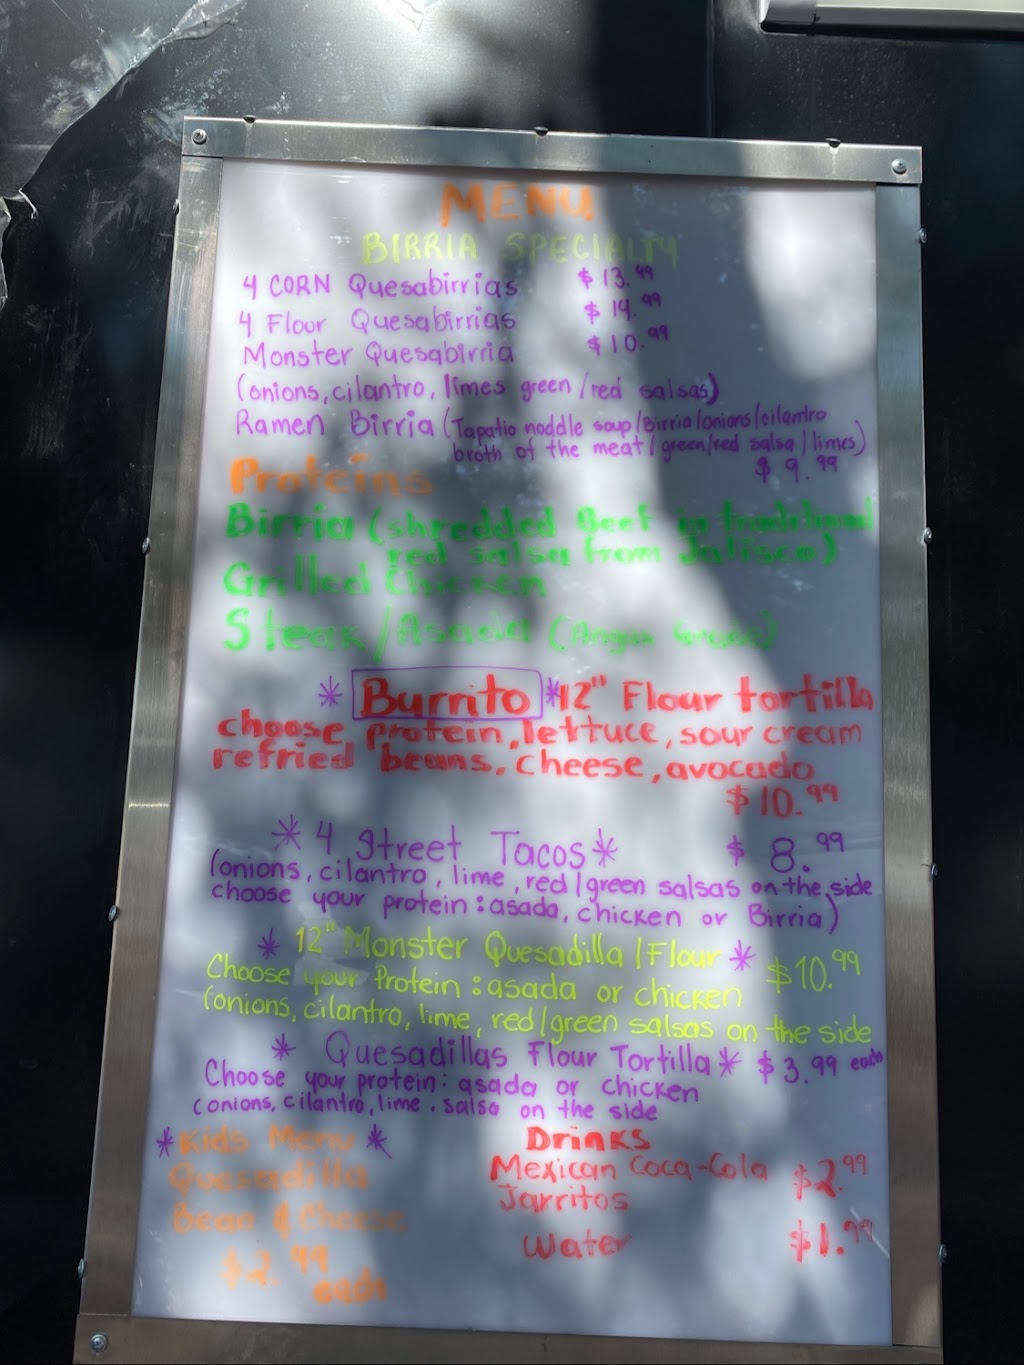 MENU
BIRRIA SPECIALTY
4 CORN Quesabirrias $13.99
4 Flour Quesabirrias $14.99
Monster Quesabirria $10.99
(onions, cilantro, limes green/red salsas)
Ramen Birria (Tapatio noddle soup/Birria/onions/cilantro
broth of the meat/green/red salsa/limes)
$9.99
Proteins
Birria (shredded Beef in traditional
red salsa from Jalisco)
Grilled Chicken
Steak/Asada
*Burrito* 12" Flour tortilla
choose protein, lettuce, sour cream
refried beans, cheese, avocado
$10.99
*4 Street Tacos* $8.99
(onions, cilantro, lime, red/green salsas on the side
choose your protein: asada, chicken or Birria)
*12" Monster Quesadilla/Flour* $10.99
Choose your Protein: asada or chicken
(onions, cilantro, lime, red/green salsas on the side
*Quesadillas Flour Tortilla* $3.99 each
Choose your protein: asada or chicken
(onions, cilantro, lime. salsa on the side
*Kids Menu*
Quesadilla
Bean & Cheese
$2.99
each
Drinks
Mexican Coca-Cola $2.99
Jarritos
Water $1.99